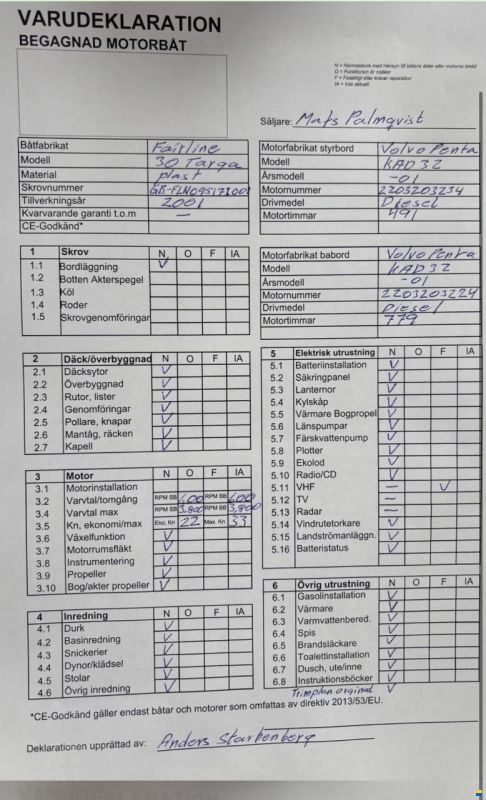 VARUDEKLARATION
BEGAGNAD MOTORBÅT
N = Normalskick med hänsyn till båtens ålder eller motorns timtid
O = Funktionen är osäker
F = Felaktigt eller kräver reparation
IA = Inte aktuell
Säljare: Mats Palmqvist
Båtfabrikat Fairline
Modell 30 Targa
Material plast
Skrovnummer
Tillverkningsår 2001
Kvarvarande garanti t.o.m —
CE-Godkänd*
Motorfabrikat styrbord Volvo Penta
Modell KAD 32
Årsmodell -01
Motornummer 2203203234
Drivmedel Diesel
Motortimmar 491
Motorfabrikat babord Volvo Penta
Modell KAD 32
Årsmodell -01
Motornummer 2203203224
Drivmedel Diesel
Motortimmar 779
1 Skrov N O F IA
1.1 Bordläggning V
1.2 Botten Akterspegel
1.3 Köl
1.4 Roder
1.5 Skrovgenomföringar
2 Däck/överbyggnad N O F IA
2.1 Däcksytor V
2.2 Överbyggnad V
2.3 Rutor, lister V
2.4 Genomföringar V
2.5 Pollare, knapar V
2.6 Mantåg, räcken V
2.7 Kapell V
3 Motor N O F IA
3.1 Motorinstallation
3.2 Varvtal/tomgång RPM SB 600 RPM BB 600
3.4 Varvtal max RPM SB 3,800 RPM BB 3,800
3.5 Kn, ekonomi/max Eko. Kn 22 Max. Kn 33
3.6 Växelfunktion V
3.7 Motorrumsfläkt V
3.8 Instrumentering V
3.9 Propeller V
3.10 Bog/akter propeller V
4 Inredning N O F IA
4.1 Durk V
4.2 Basinredning V
4.3 Snickerier V
4.4 Dynor/klädsel V
4.5 Stolar V
4.6 Övrig inredning V
5 Elektrisk utrustning N O F IA
5.1 Batteriinstallation V
5.2 Säkringpanel V
5.3 Lanternor V
5.4 Kylskåp V
5.5 Värmare Bogpropel V
5.6 Länspumpar V
5.7 Färskvattenpump V
5.8 Plotter V
5.9 Ekolod V
5.10 Radio/CD V
5.11 VHF — V
5.12 TV —
5.13 Radar —
5.14 Vindrutetorkare V
5.15 Landströmanläggn. V
5.16 Batteristatus V
6 Övrig utrustning N O F IA
6.1 Gasolinstallation V
6.2 Värmare V
6.3 Varmvattenbered. V
6.4 Spis V
6.5 Brandsläckare V
6.6 Toalettinstallation V
6.7 Dusch, ute/inne V
6.8 Instruktionsböcker V
Trimplan orginal V
*CE-Godkänd gäller endast båtar och motorer som omfattas av direktiv 2013/53/EU.
Deklarationen upprättad av: Anders Starkenberg